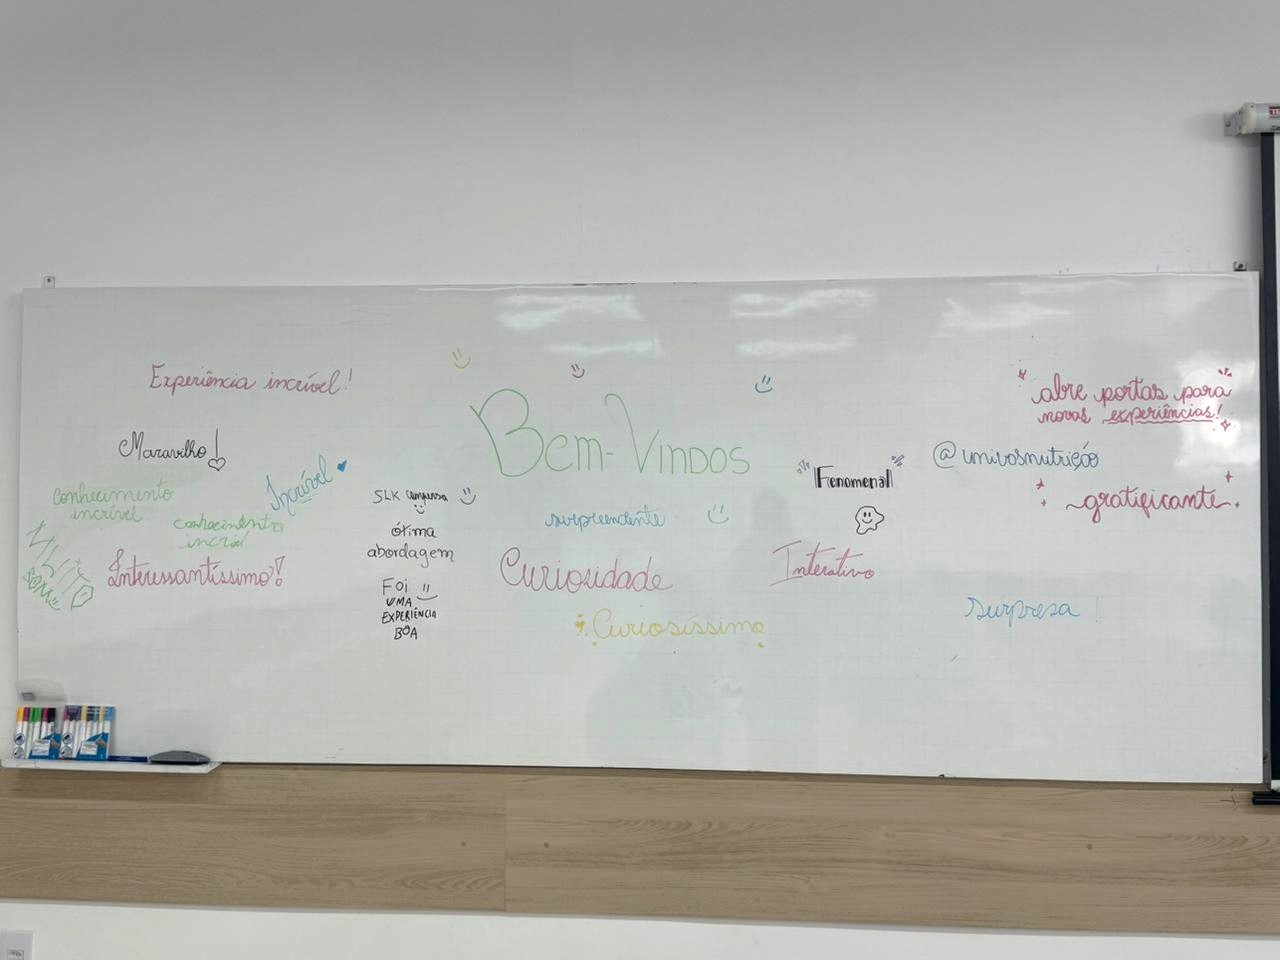 Experiência incrível!
Maravilho!
Incrível
conhecimento
incrível
conhecimento
incrível
MUITO
BOM
Interessantíssimo!
SLK
ótima
abordagem
FOI
UMA
EXPERIÊNCIA
BOA
Bem-Vindos
surpreendente
Curiosidade
Curiosíssimo
Fenomenal
Interativo
abre portas para
novas experiências!
@univsnutrição
gratificante
surpresa!